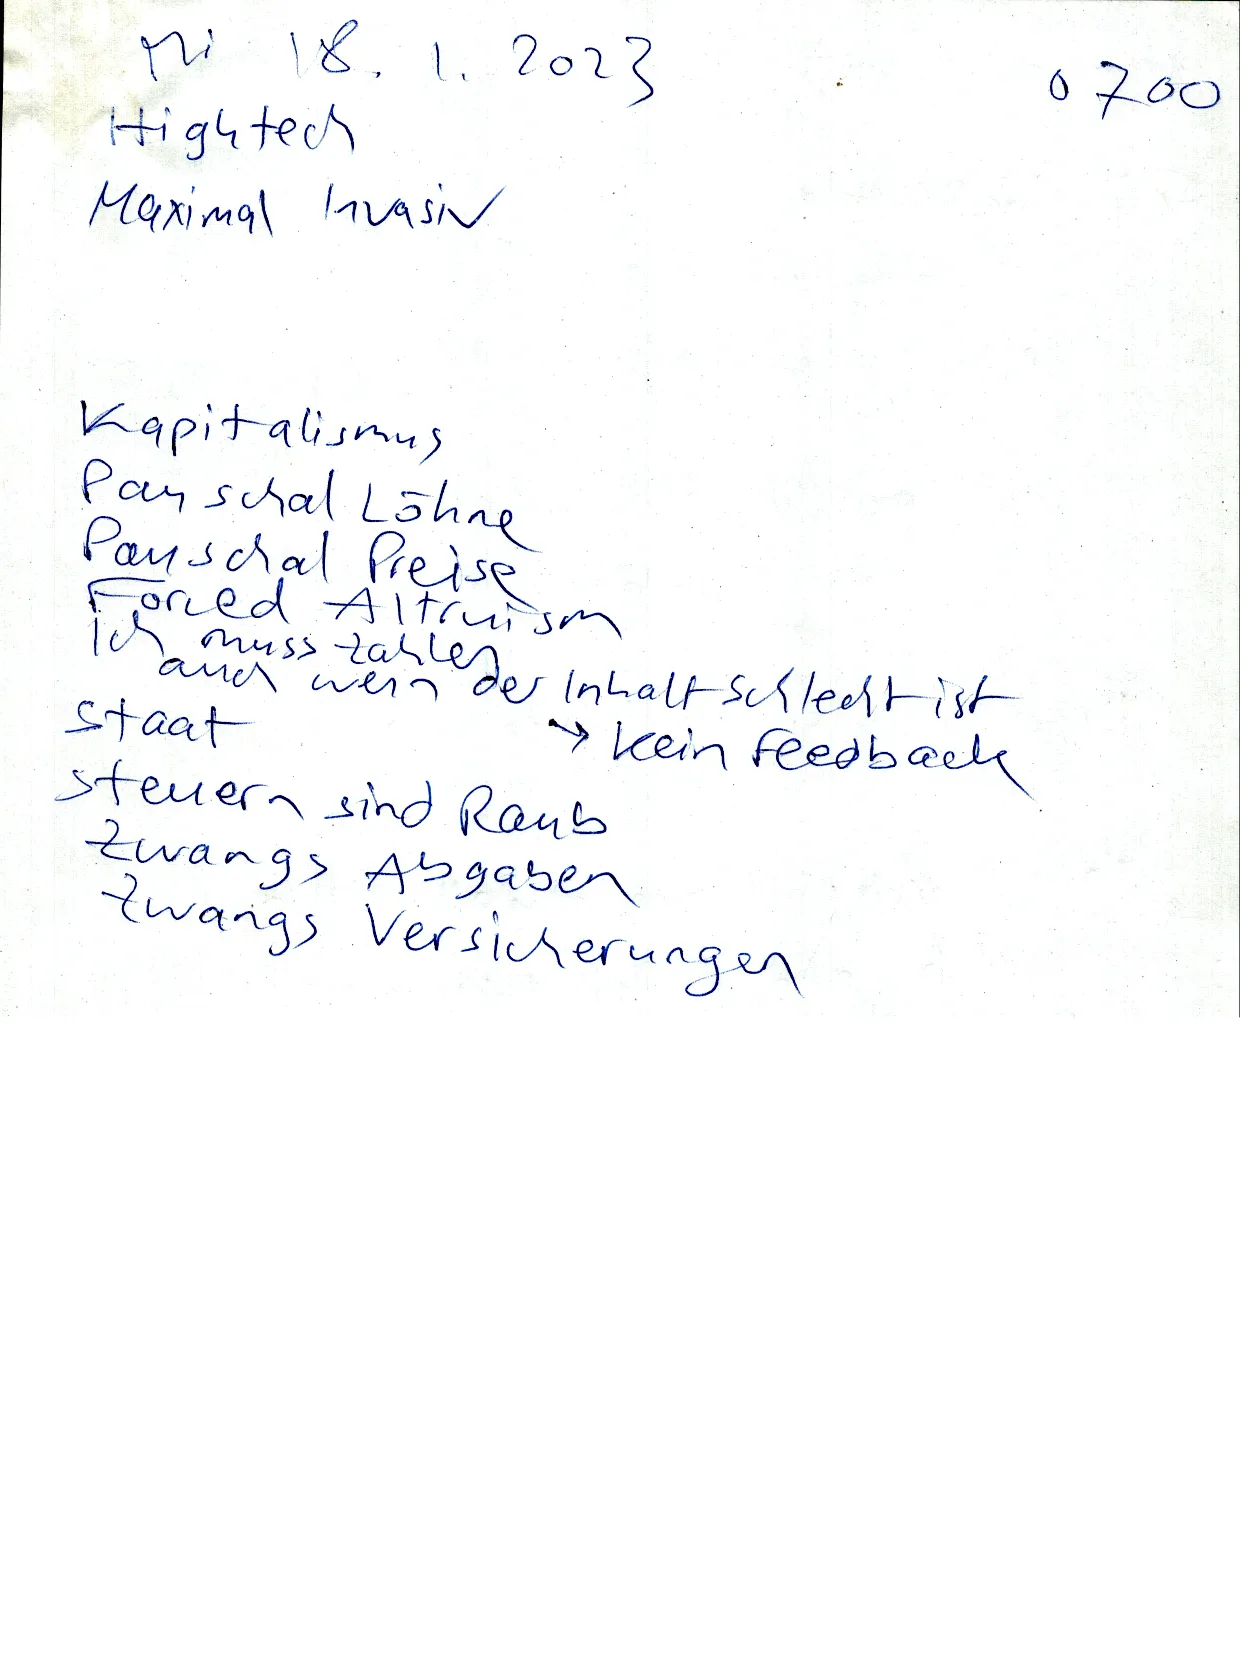 Mi 18. 1. 2023 0700
Hightech
Maximal Invasiv
Kapitalismus
Pauschal Löhne
Pauschal Preise
Forced Altruism
Ich muss zahlen
auch wenn der Inhalt schlecht ist
→ kein Feedback
Staat
Steuern sind Raub
Zwangs Abgaben
Zwangs Versicherungen